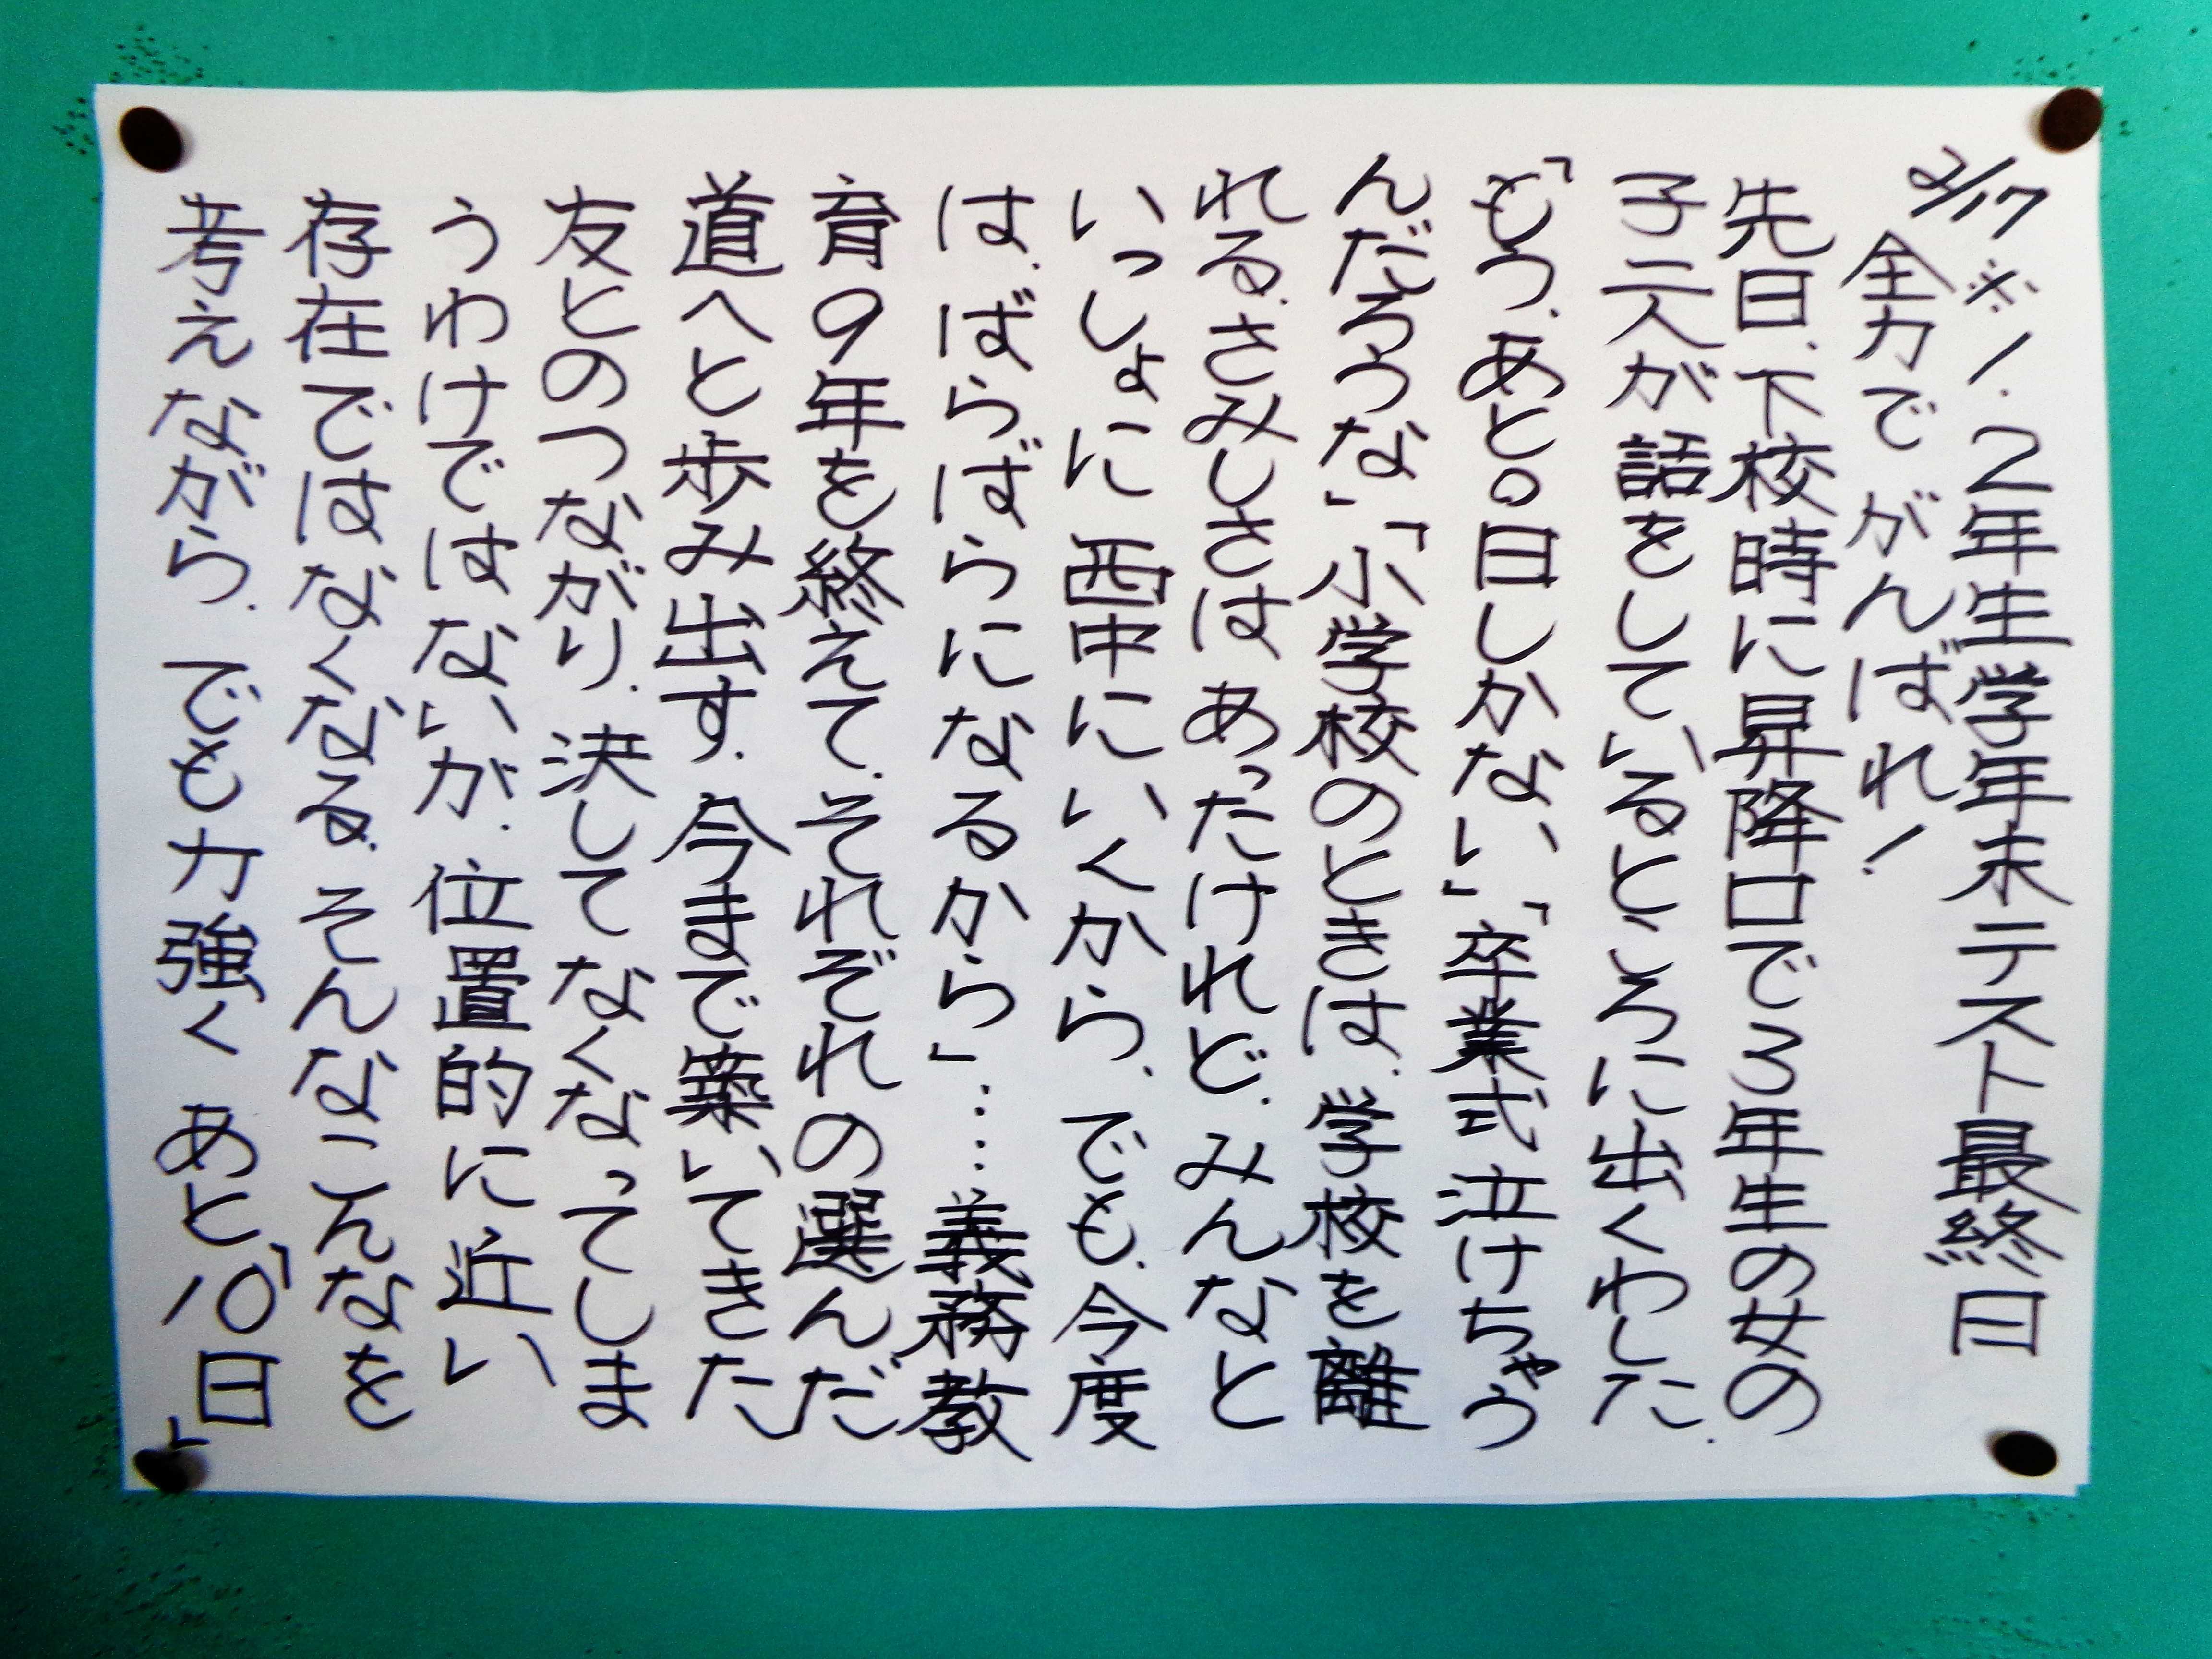 2/17 ※1.2年生学年末テスト最終日
全力で がんばれ!
先日、下校時に昇降口で3年生の女の
子二人が話をしているところに出くわした。
「もう、あと○日しかない」「卒業式 泣けちゃう
んだろうな」「小学校のときは、学校を離
れる、さみしさは あったけれど、みんなと
いっしょに 西中にいくから、でも、今度
は、ばらばらになるから」……義務教
育9年を終えて、それぞれの選んだ
道へと歩み出す、今まで築いてきた
友とのつながり、決してなくなってしま
うわけではないが、位置的に近い
存在ではなくなる、そんなこんなを
考えながら、でも力強く あと「10日」